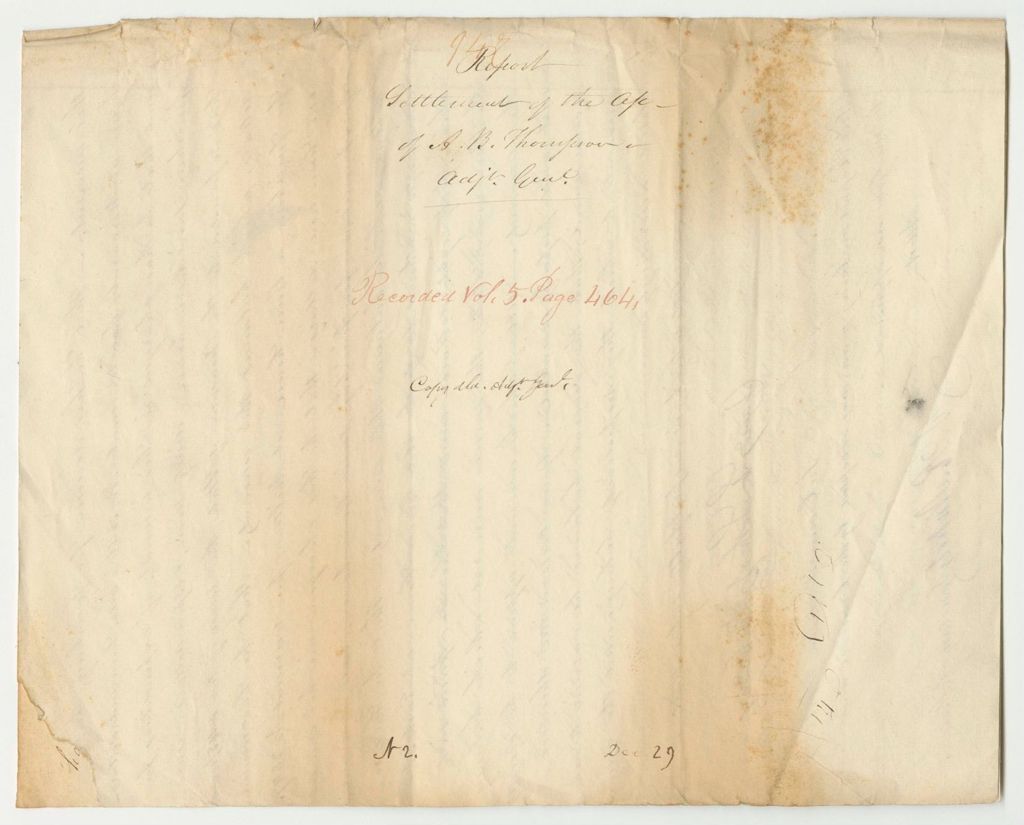 942
Report
Settlement of the A/c
of A. B. Thompson
Adjt. Genl.
Recorded Vol. 5. Page 464,
Copy dld. Adjt. Genl.
N 2.
Dec 29